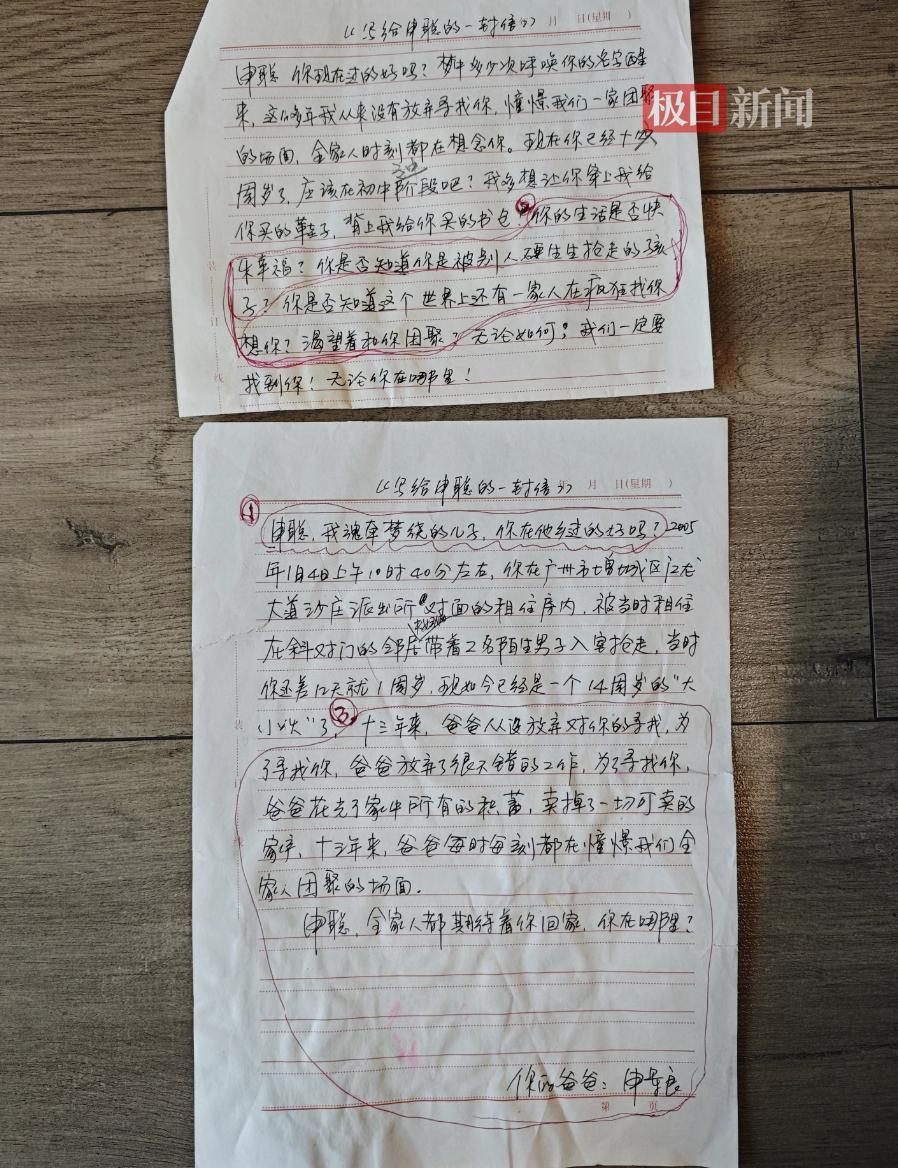 《写给申聪的一封信》 月 日(星期 )
申聪 你现在过的好吗？梦中多少次呼唤你的名字醒
极目新闻
来，这些多年我从来没有放弃寻找你，憧憬我们一家团聚
的场面，全家人时刻都在想念你。现在你已经十四
周岁了，应该在初中阶段吧？我多想让你穿上我给
你买的鞋子，背上我给你买的书包 ② 你的生活是否快
乐幸福？你是否知道你是被别人硬生生抢走的孩
子？你是否知道这个世界上还有一家人在疯狂找你
想你？渴望着和你团聚？无论如何！我们一定要
找到你！无论你在哪里！
装
订
线
《写给申聪的一封信》 年 月 日(星期 )
①
申聪，我魂牵梦绕的儿子，你在他乡过的好吗？2005
年1月4日上午10时40分左右，你在广州市增城区江龙
大道沙庄派出所对面的租住房内，被当时租住
在斜对门的邻居带着2名陌生男子入室抢走，当时
你还差12天就1周岁，现如今已经是一个14周岁的“大
小伙”了，③ 十三年来，爸爸从没放弃对你的寻找，为
了寻找你，爸爸放弃了很不错的工作，为了寻找你，
爸爸花光了家中所有的积蓄，卖掉了一切可卖的
家产，十三年来，爸爸每时每刻都在憧憬我们全
家人团聚的场面．
申聪，全家人都期待着你回家，你在哪里？
装
你的爸爸：申军良
第 页